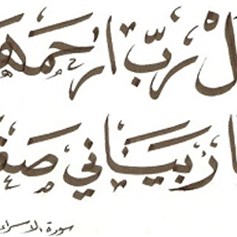 ل ربّ ارحمه
ا ربياني صغ
سورة الاسرا